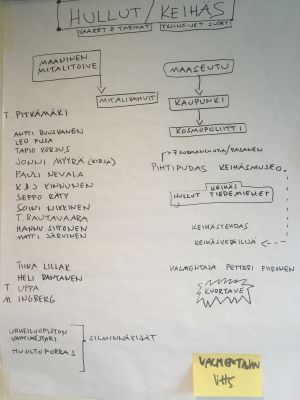 HULLUT / KEIHÄS
KAARET & TARINAT YKSINÄISET SUDET
MAANINEN
MITALITOIVE
MITALIKAHVIT
T. PITKÄMÄKI
ANTTI RUUSKANEN
LEO PUSA
TAPIO KORJUS
JONNI MYYRÄ (KIRJA)
PAULI NEVALA
K & J KINNUNEN
SEPPO RÄTY
SOINI NIKKINEN
T. RAUTAVAARA
HANNU SIITONEN
MATTI JÄRVINEN
TIINA LILLAK
HELI RANTANEN
T. UPPA
M. INGBERG
URHEILUOPISTON
VAHTIMESTARI
HUOLTOPORRAS
SILMINNÄKIJÄT
MAASEUTU
KAUPUNKI
KOSMOPOLIITTI
PIHTIPUDAS KEIHÄSMUSEO
KEIHÄS
HULLUT TIEDEMIEHET
KEIHÄSTEHDAS
KEIHÄSKENIALLA
VALMENTAJA PETTERI PIIRONEN
KUORTANE
VALMENTAJAN
VHS